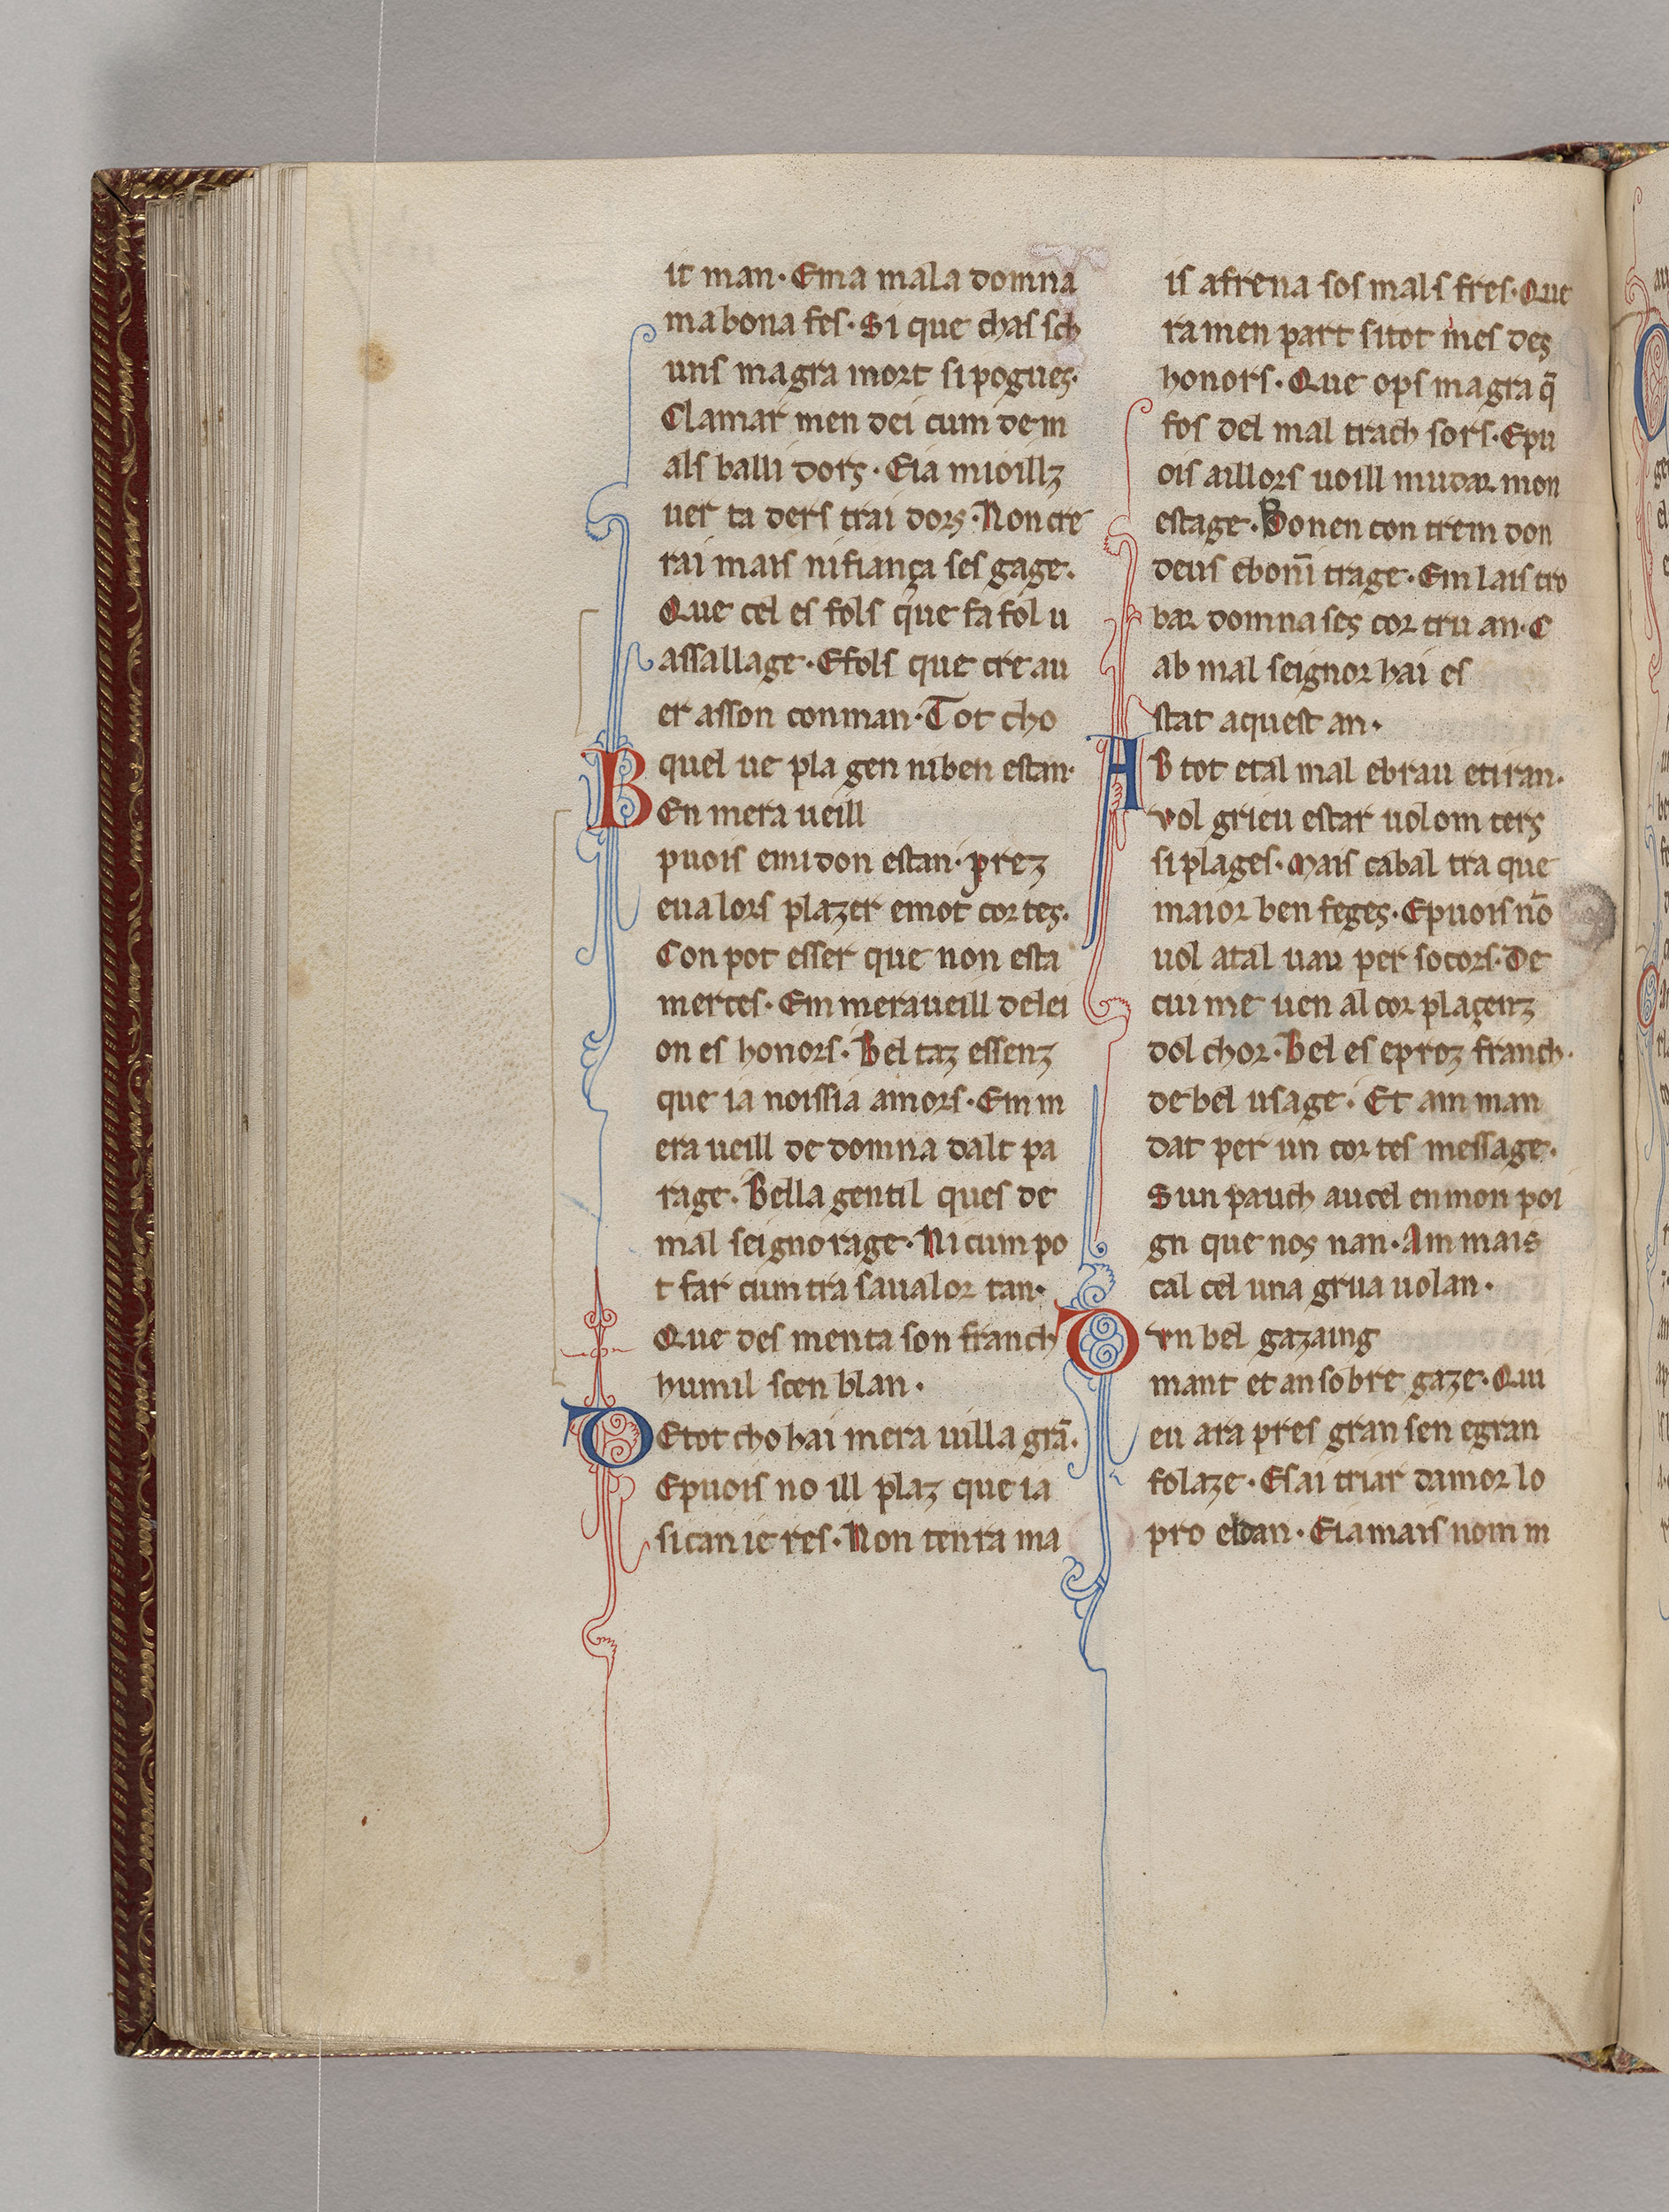 it man· Em a mala domna
ma bona fes· Si que chas sch
uns magra mort si pogues·
Clamar men dei cum de m
als balli dors· Eia mioillz
uer ta ders trai dors· Non cre
rai mais ni fiança ses gage·
Que cel es fols que fa fol u
assallage· E fols que cre au
er asson conman· Tot cho
quel ue pla gen ni ben estan·
BEn mera ueill
puois emidon estan· prez
eualors plazer emot cortes·
Con pot esser que non esta
merces· Em meraueill delei
on es honors· Beltaz essenz
que ia noissia amors· Em m
era ueill de domna dalt pa
rage· Bella gentil ques de
mal seignorage· Ni cum po
t far cum tra saualor tan·
Que des menta son franch
humil scen blan·
DE tot cho hai mera uilla grā·
E puois no ill plaz que ia
si can ie res· Non tenra ma
is afrena sos mals fres· Que
ra men part si tot mes des
honors· Que ops magra q̄
fos del mal trach sors· E pu
ois aillors uoill mudar mon
estage· Bon en contrem don
deus e bonī trage· Em lais tro
bar domna ses cor tru an· C
ab mal seignor hai es
stat aquest an·
AB tot etal mal e brau e tiran·
Vol grieu estar uol om ters
si plages· Mais cabal tra que
maior ben feges· E puois nō
uol atal uau per socors· De
cui me uen al cor plagenz
dolchor· Bel es e proz franch·
de bel usage· Et am man
dat per un cortes message·
Sun pauch aucel en mon poi
gn que nos nan· Am mais
cal cel una grua uolan·
DVn bel gazaing
mant et an sobre gaze· Qui
eu ara pres gran sen egran
folaze· E sai triar damor lo
pro eldan· E iamais nom m